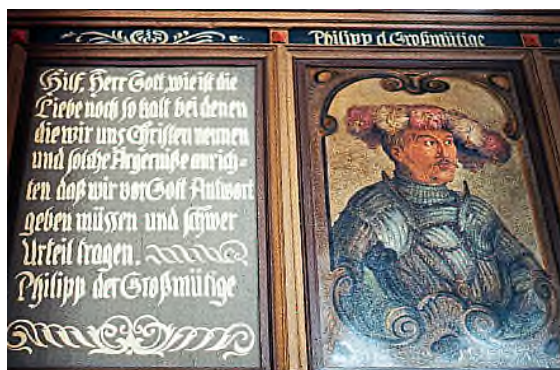 Philipp d. Großmütige
Hilf, Herr Gott, wie ist die
Liebe noch so kalt bei denen
die wir uns Christen nennen
und solche Ärgerniße anrich=
ten daß wir vor Gott Antwort
geben müssen und schwer
Urteil tragen.
Philipp der Großmütige